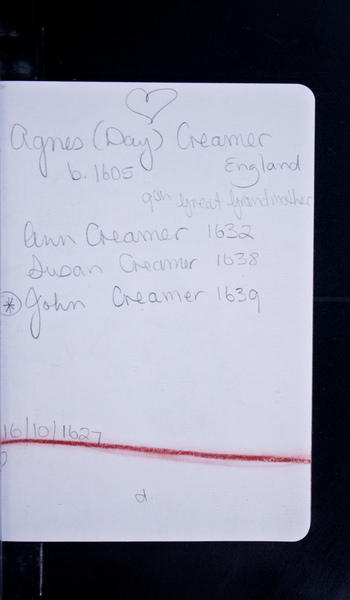 Agnes (Day) Creamer
b. 1605 England
9th Great Grandmother
Ann Creamer 1632
Susan Creamer 1638
* John Creamer 1639
16/10/1627
d